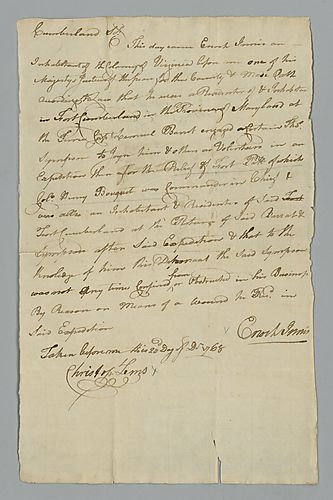 Cumberland Sst
This day came Enoch Innis an
Inhabitant of the Colony of Virginia before me one of his
Majestys Justices of the peace for the County & Made Oath
according to Law that he was a Resident of & Inhabiter
in Fort Cumberland in the Province of Maryland at
the Time Capt. Lemuel Barrit engaged a Certain Thos.
Sympson to Joyn him & others as Volunteers in an
Expedition then after the Relief of Fort Pitt of which
Colo. Henry Bouquet was Commander in Chief &
was also an Inhabitant & Residenter of Said Fort
Fort Cumberland at the Return of Said Barrit &
Sympson after Said Expedition & that to the
knowledg of him this Deponent the Said Sympson
was not any time Confined from or Obstructed in his Business
By Reason or Means of a Wound he Recd. in
Said Expedition
Taken before me this 20 Day of Dr. 1768
Enoch Innis
Christop. Lems